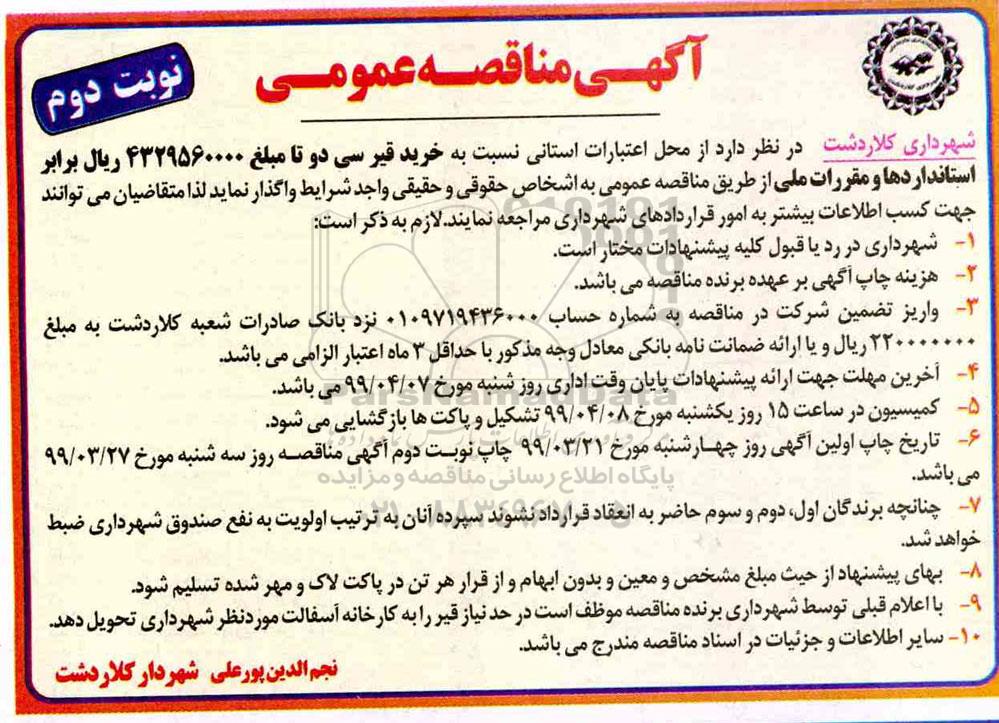 آگهی مناقصه عمومی
نوبت دوم
شهرداری کلاردشت در نظر دارد از محل اعتبارات استانی نسبت به خرید قیر سی دو تا مبلغ ۴۳۲۹۵۶۰۰۰۰ ریال برابر
استانداردها و مقررات ملی از طریق مناقصه عمومی به اشخاص حقوقی و حقیقی واجد شرایط واگذار نماید لذا متقاضیان می توانند
جهت کسب اطلاعات بیشتر به امور قراردادهای شهرداری مراجعه نمایند.لازم به ذکر است:
۱- شهرداری در رد یا قبول کلیه پیشنهادات مختار است.
۲- هزینه چاپ آگهی بر عهده برنده مناقصه می باشد.
۳- واریز تضمین شرکت در مناقصه به شماره حساب ۰۱۰۹۷۱۹۴۳۶۰۰۰ نزد بانک صادرات شعبه کلاردشت به مبلغ
۲۲۰۰۰۰۰۰۰ ریال و یا ارائه ضمانت نامه بانکی معادل وجه مذکور با حداقل ۳ ماه اعتبار الزامی می باشد.
۴- آخرین مهلت جهت ارائه پیشنهادات پایان وقت اداری روز شنبه مورخ ۹۹/۰۴/۰۷ می باشد.
ParsNamadData
۵- کمیسیون در ساعت ۱۵ روز یکشنبه مورخ ۹۹/۰۴/۰۸ تشکیل و پاکت ها بازگشایی می شود.
۶- تاریخ چاپ اولین آگهی روز چهارشنبه مورخ ۹۹/۰۳/۲۱ چاپ نوبت دوم آگهی مناقصه روز سه شنبه مورخ ۹۹/۰۳/۲۷
می باشد.
پایگاه اطلاع رسانی مناقصه و مزایده
۷- چنانچه برندگان اول، دوم و سوم حاضر به انعقاد قرارداد نشوند سپرده آنان به ترتیب اولویت به نفع صندوق شهرداری ضبط
خواهد شد.
۸- بهای پیشنهاد از حیث مبلغ مشخص و معین و بدون ابهام و از قرار هر تن در پاکت لاک و مهر شده تسلیم شود.
۹- با اعلام قبلی توسط شهرداری برنده مناقصه موظف است در حد نیاز قیر را به کارخانه آسفالت موردنظر شهرداری تحویل دهد.
۱۰- سایر اطلاعات و جزئیات در اسناد مناقصه مندرج می باشد.
نجم الدین پورعلی شهردار کلاردشت